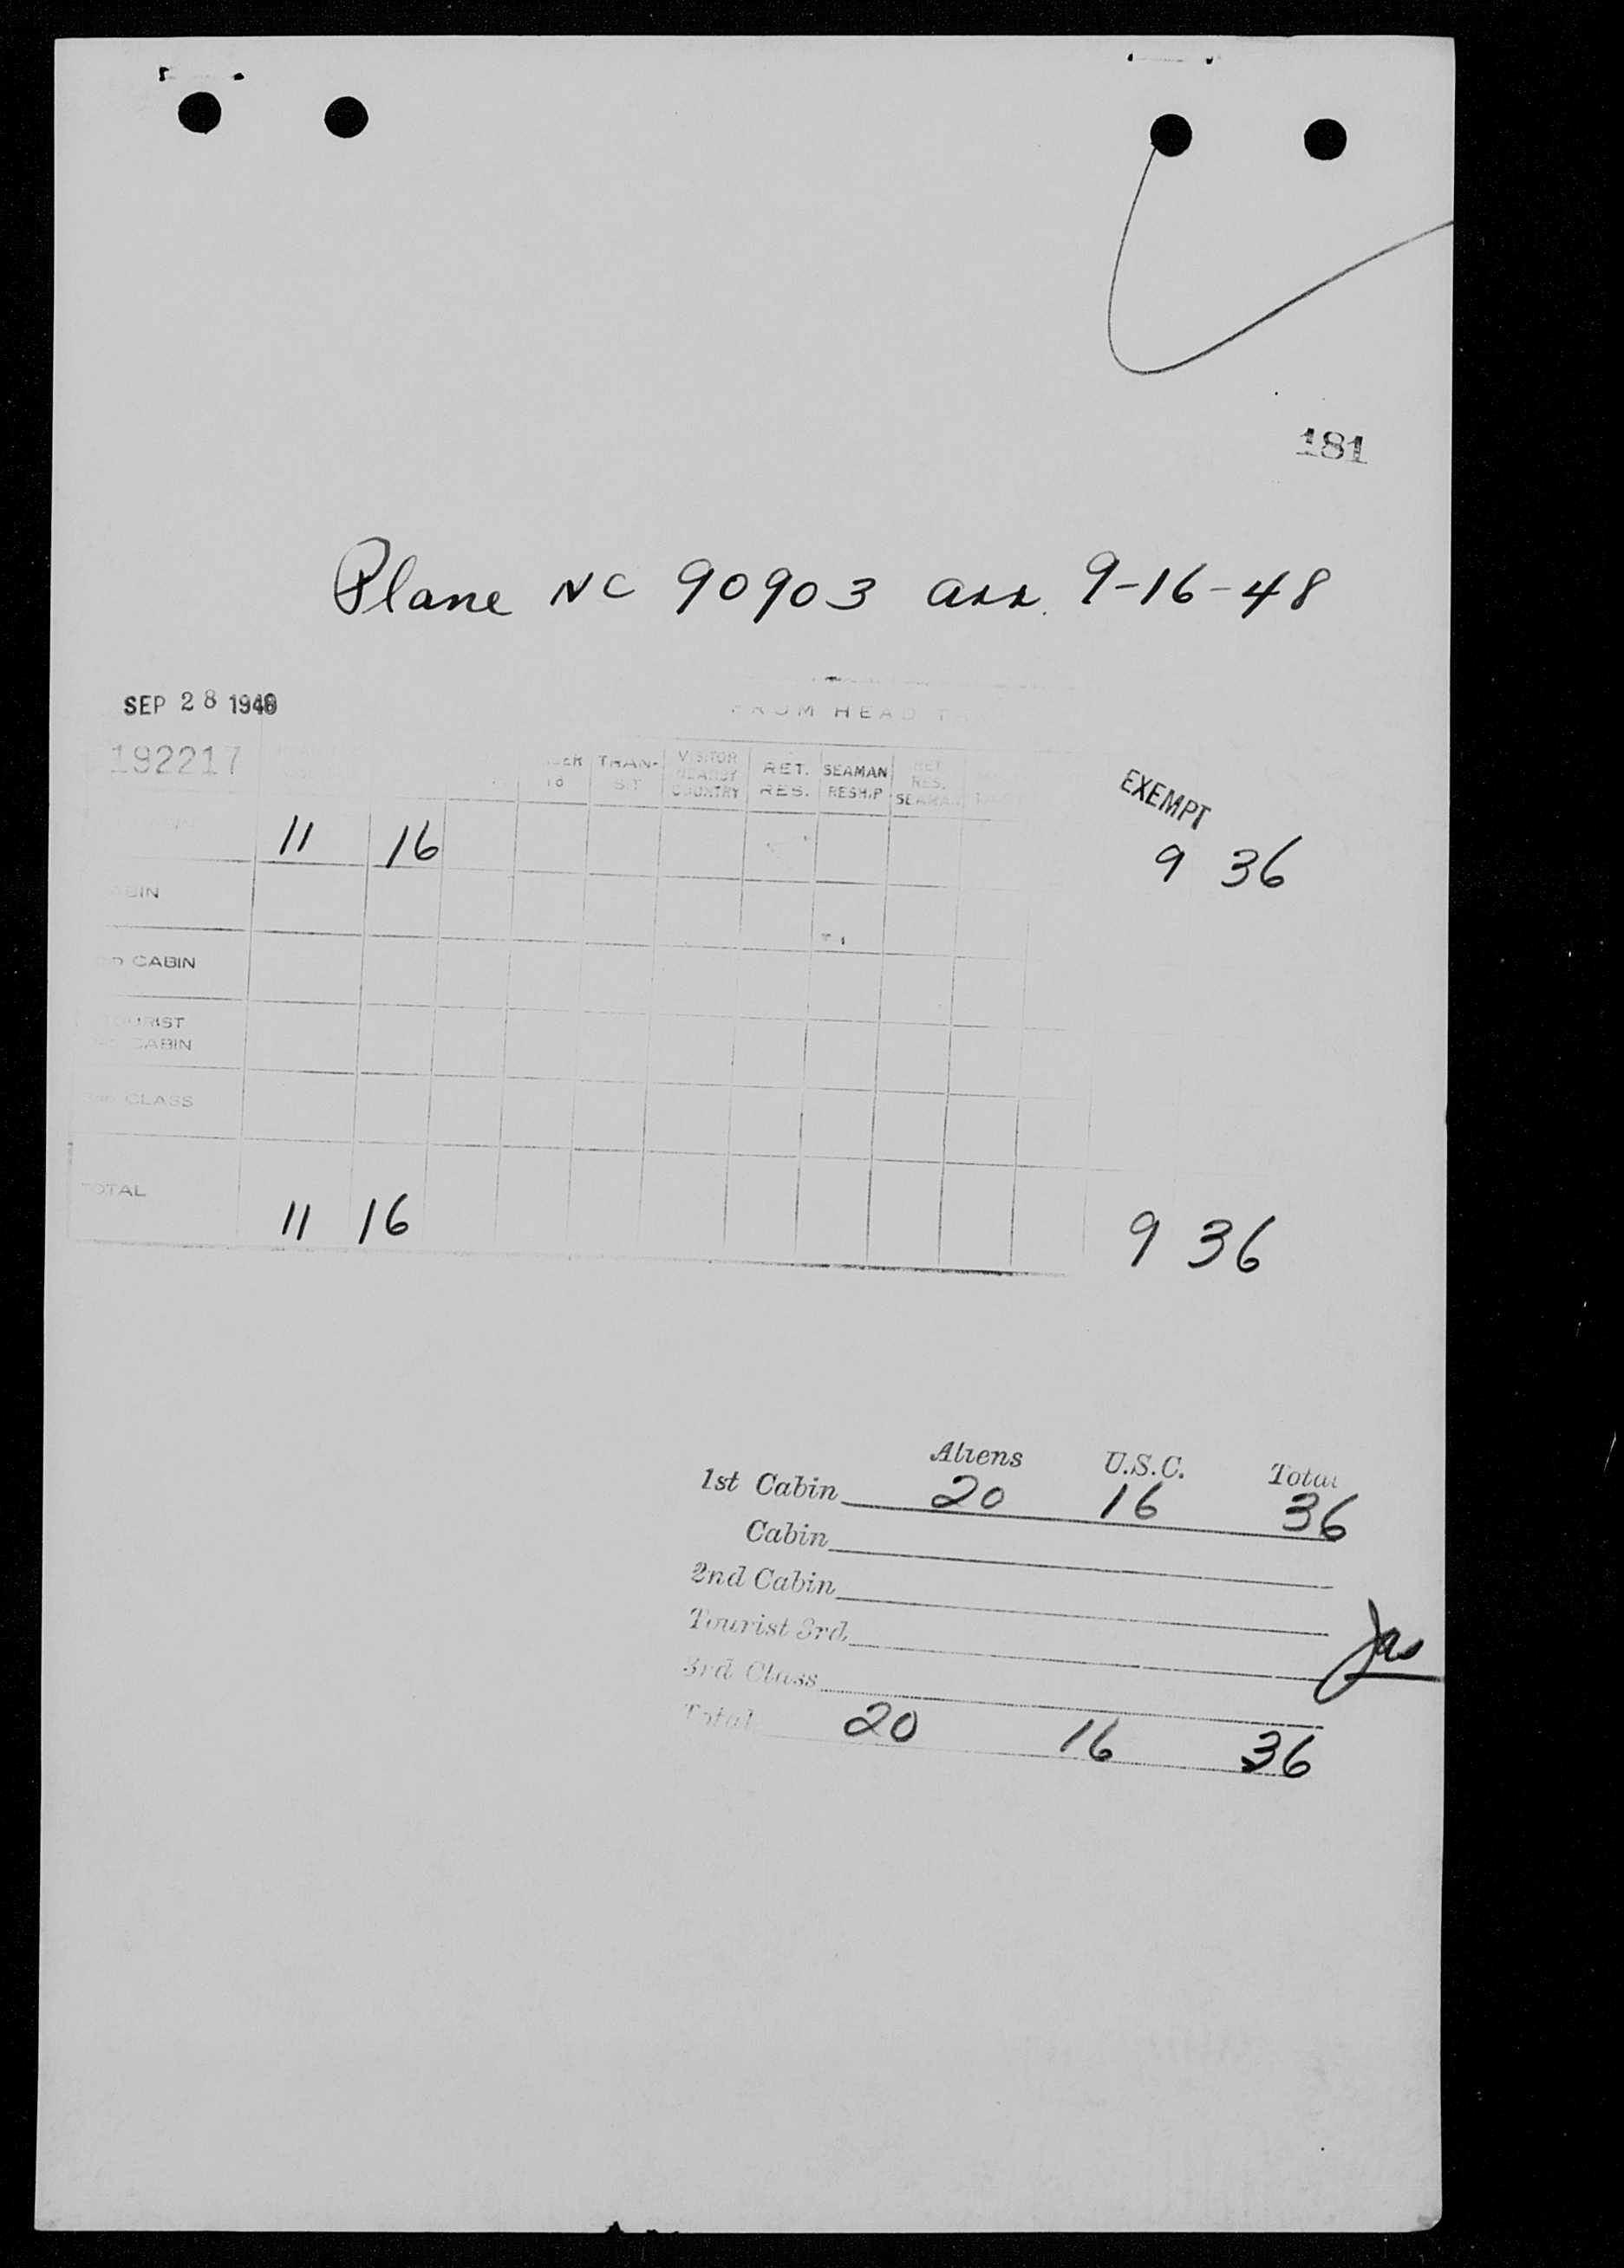 181
Plane NC 90903 arr. 9-16-48
SEP 28 1948
FROM HEAD
192217
TRAN-SIT VISITOR NEARBY COUNTRY RET. RES. SEAMAN RESHIP RET. RES. SEAMAN EXEMPT
11 16 9 36
CABIN
CABIN
TOURIST
CABIN
3RD CLASS
TOTAL 11 16 9 36
Aliens U.S.C. Total
1st Cabin 20 16 36
Cabin
2nd Cabin
Tourist 3rd
3rd Class
Total 20 16 36